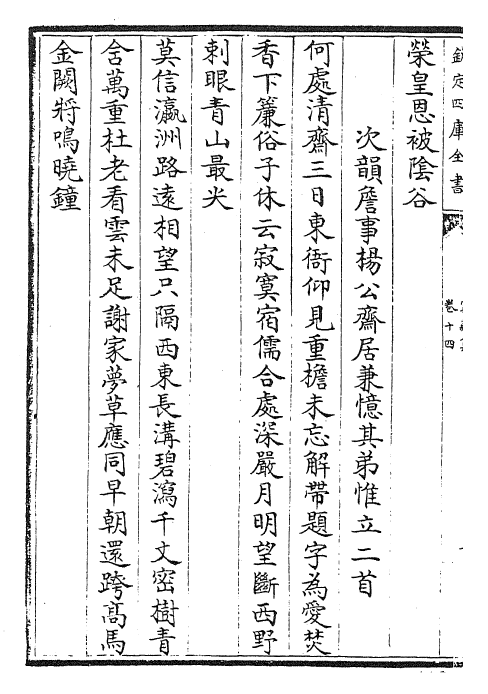 欽定四庫全書
卷十四
榮皇恩被陰谷
次韻詹事楊公齋居兼憶其弟惟立二首
何處清齋三日東衙仰見重檐未忘解帶題字為愛焚
香下簾俗子休云寂寞宿儒合處深嚴月明望斷西野
刺眼青山最尖
莫信瀛洲路遠相望只隔西東長溝碧瀉千丈密樹青
含萬重杜老看雲未足謝家夢草應同早朝還跨高馬
金闕將鳴曉鐘